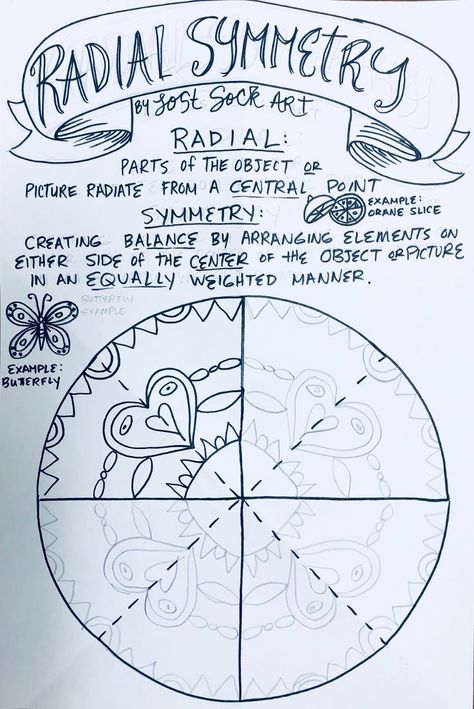 RADIAL SYMMETRY
BY LOST SOCK ART
RADIAL:
PARTS OF THE OBJECT OR
PICTURE RADIATE FROM A CENTRAL POINT
EXAMPLE:
ORANE SLICE
SYMMETRY:
CREATING BALANCE BY ARRANGING ELEMENTS ON
EITHER SIDE OF THE CENTER OF THE OBJECT OR PICTURE
IN AN EQUALLY WEIGHTED MANNER.
BUTTERFLY
EXAMPLE
EXAMPLE:
BUTTERFLY